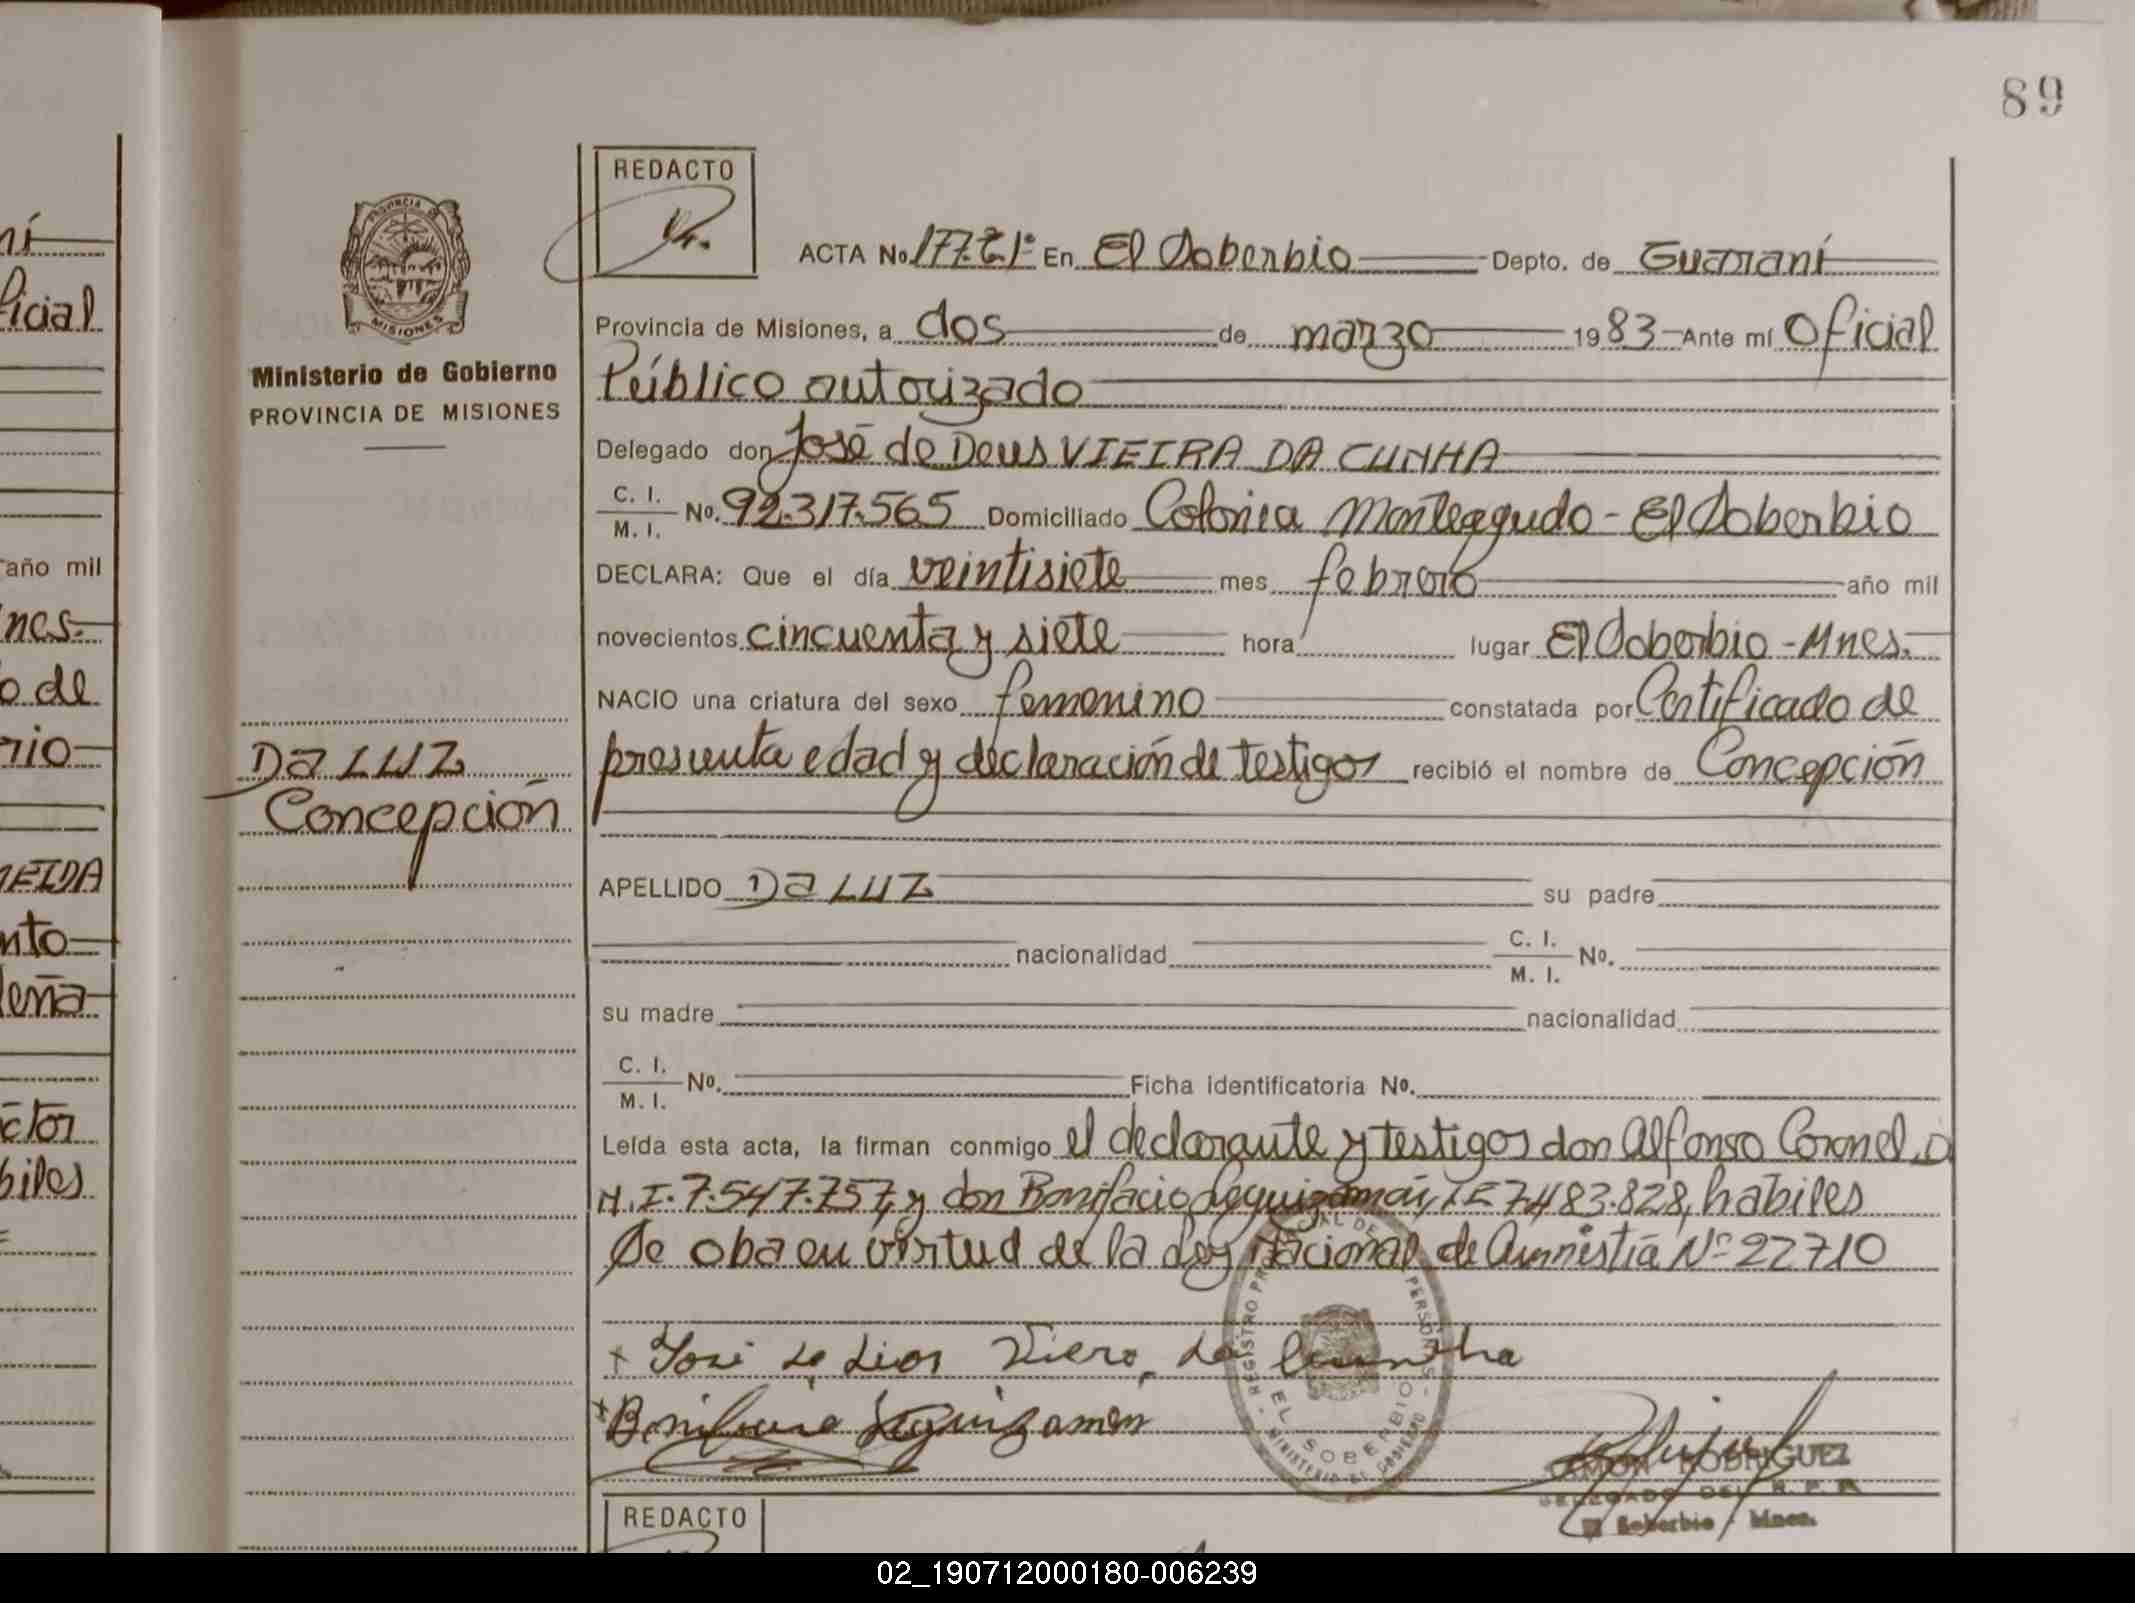 89
REDACTO
ACTA No. 177. T. 1º En El Soberbio Depto. de Guaraní
Provincia de Misiones, a dos de marzo 1983 Ante mí Oficial
Ministerio de Gobierno
PROVINCIA DE MISIONES
Público autorizado
Delegado don José de Deus VIEIRA DA CUNHA
C. I. M. I. No. 92.317.565 Domiciliado Colonia Monteagudo - El Soberbio
DECLARA: Que el día veintisiete mes febrero año mil
novecientos cincuenta y siete hora lugar El Soberbio - Mnes.
NACIO una criatura del sexo femenino constatada por Certificado de
presunta edad y declaración de testigos recibió el nombre de Concepción
Da LUZ
Concepción
APELLIDO Da LUZ su padre
nacionalidad C. I. M. I. No.
su madre nacionalidad
C. I. M. I. No. Ficha identificatoria No.
Leída esta acta, la firman conmigo el declarante y testigos don Alfonso Coronel, D
N.I. 7.547.757, y don Bonifacio Leguizamón, LE 7.483.828, hábiles
Se oba en virtud de la Ley Nacional de Amnistía Nº 22710
José de Dios Viero da Cunha
Bonifacio Leguizamón
REGISTRO PROVINCIAL DE PERSONAS
EL SOBERBIO
MINISTERIO DE GOBIERNO
RAMON RODRIGUEZ
DELEGADO DEL R. P. P.
El Soberbio - Mnes.
REDACTO
ní
ficial
año mil
nes.
o de
rio
MEIDA
nto
leña
ctor
biles
02_190712000180-006239